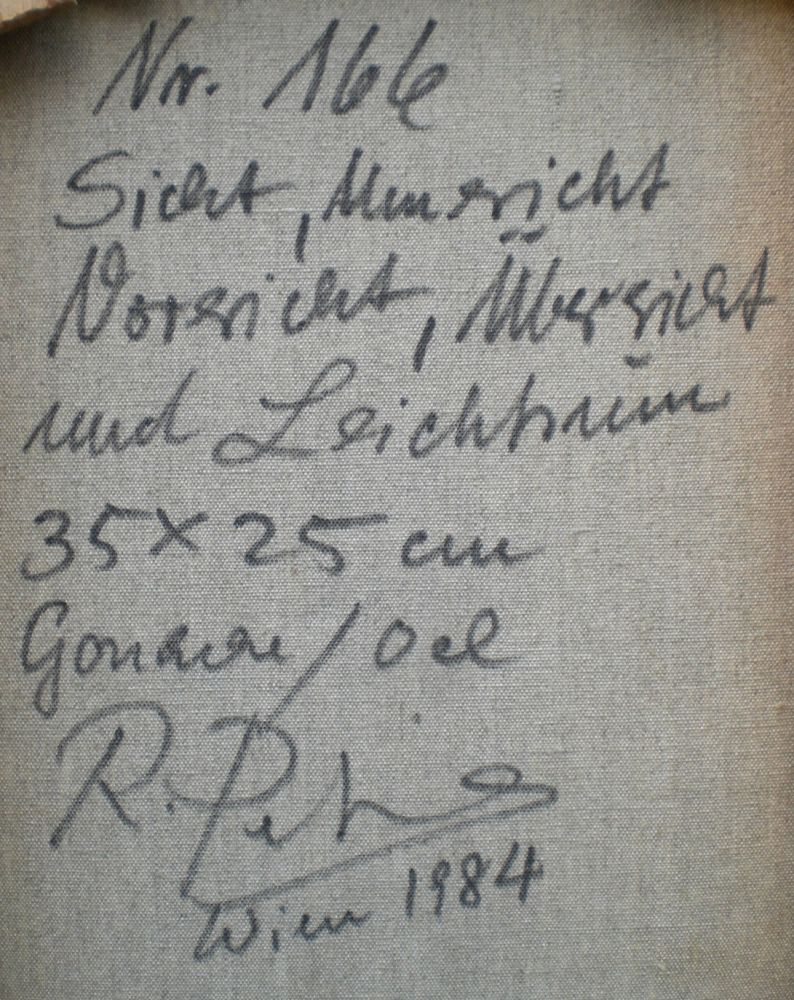 Nr. 166
Sicht, Umsicht
Vorsicht, Übersicht
und Leichtsinn
35 x 25 cm
Gouache / Oel
R.
Wien 1984